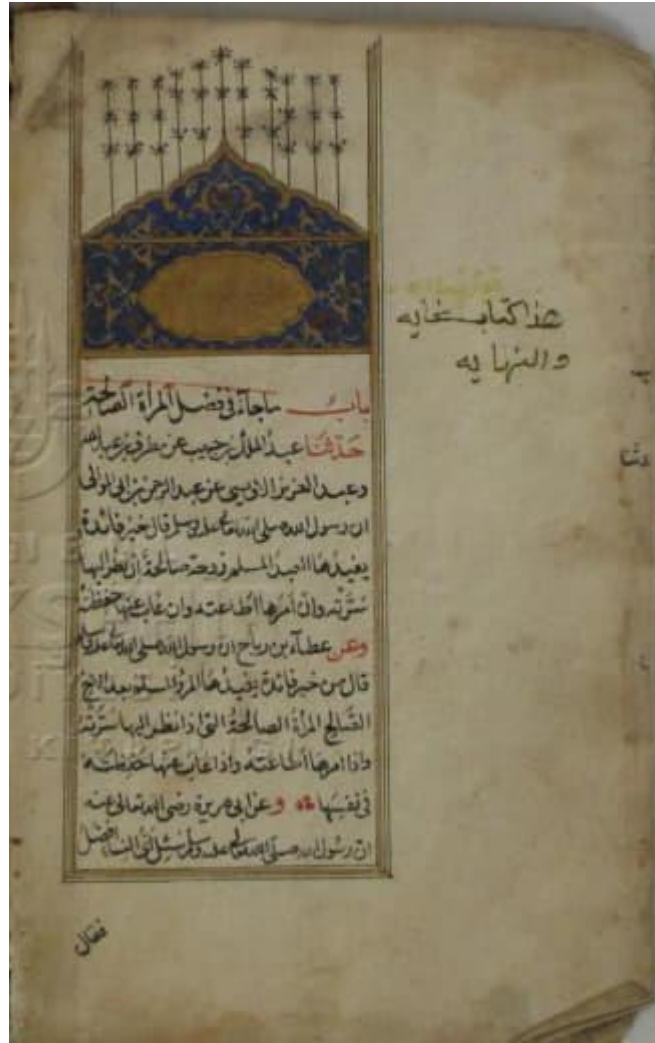 هذا كتاب غايه
والنهايه
باب ما جاء في فضل المرأة الصالحة
حدثنا عبد الملك بن حبيب عن مطرف بن عبد الله
وعبد العزيز الاويسي عن عبد الرحمن بن ابي الموالي
ان رسول الله صلى الله تعالى عليه وسلم قال خير فائدة
يفيدها العبد المسلم زوجة صالحة ان نظر اليها
سرّته وان امرها اطاعته وان غاب عنها حفظته
وعن عطاء بن رباح ان رسول الله صلى الله تعالى عليه وسلم
قال من خير فائدة يفيدها المرؤ المسلم بعد
الصالح المرأة الصالحة التي اذا نظر اليها سرّته
واذا امرها اطاعته واذا غاب عنها حفظته
في وعن ابي هريرة رضى الله تعالى عنه
ان رسول الله صلى الله تعالى عليه وسلم سئل اي النساء افضل
فقال